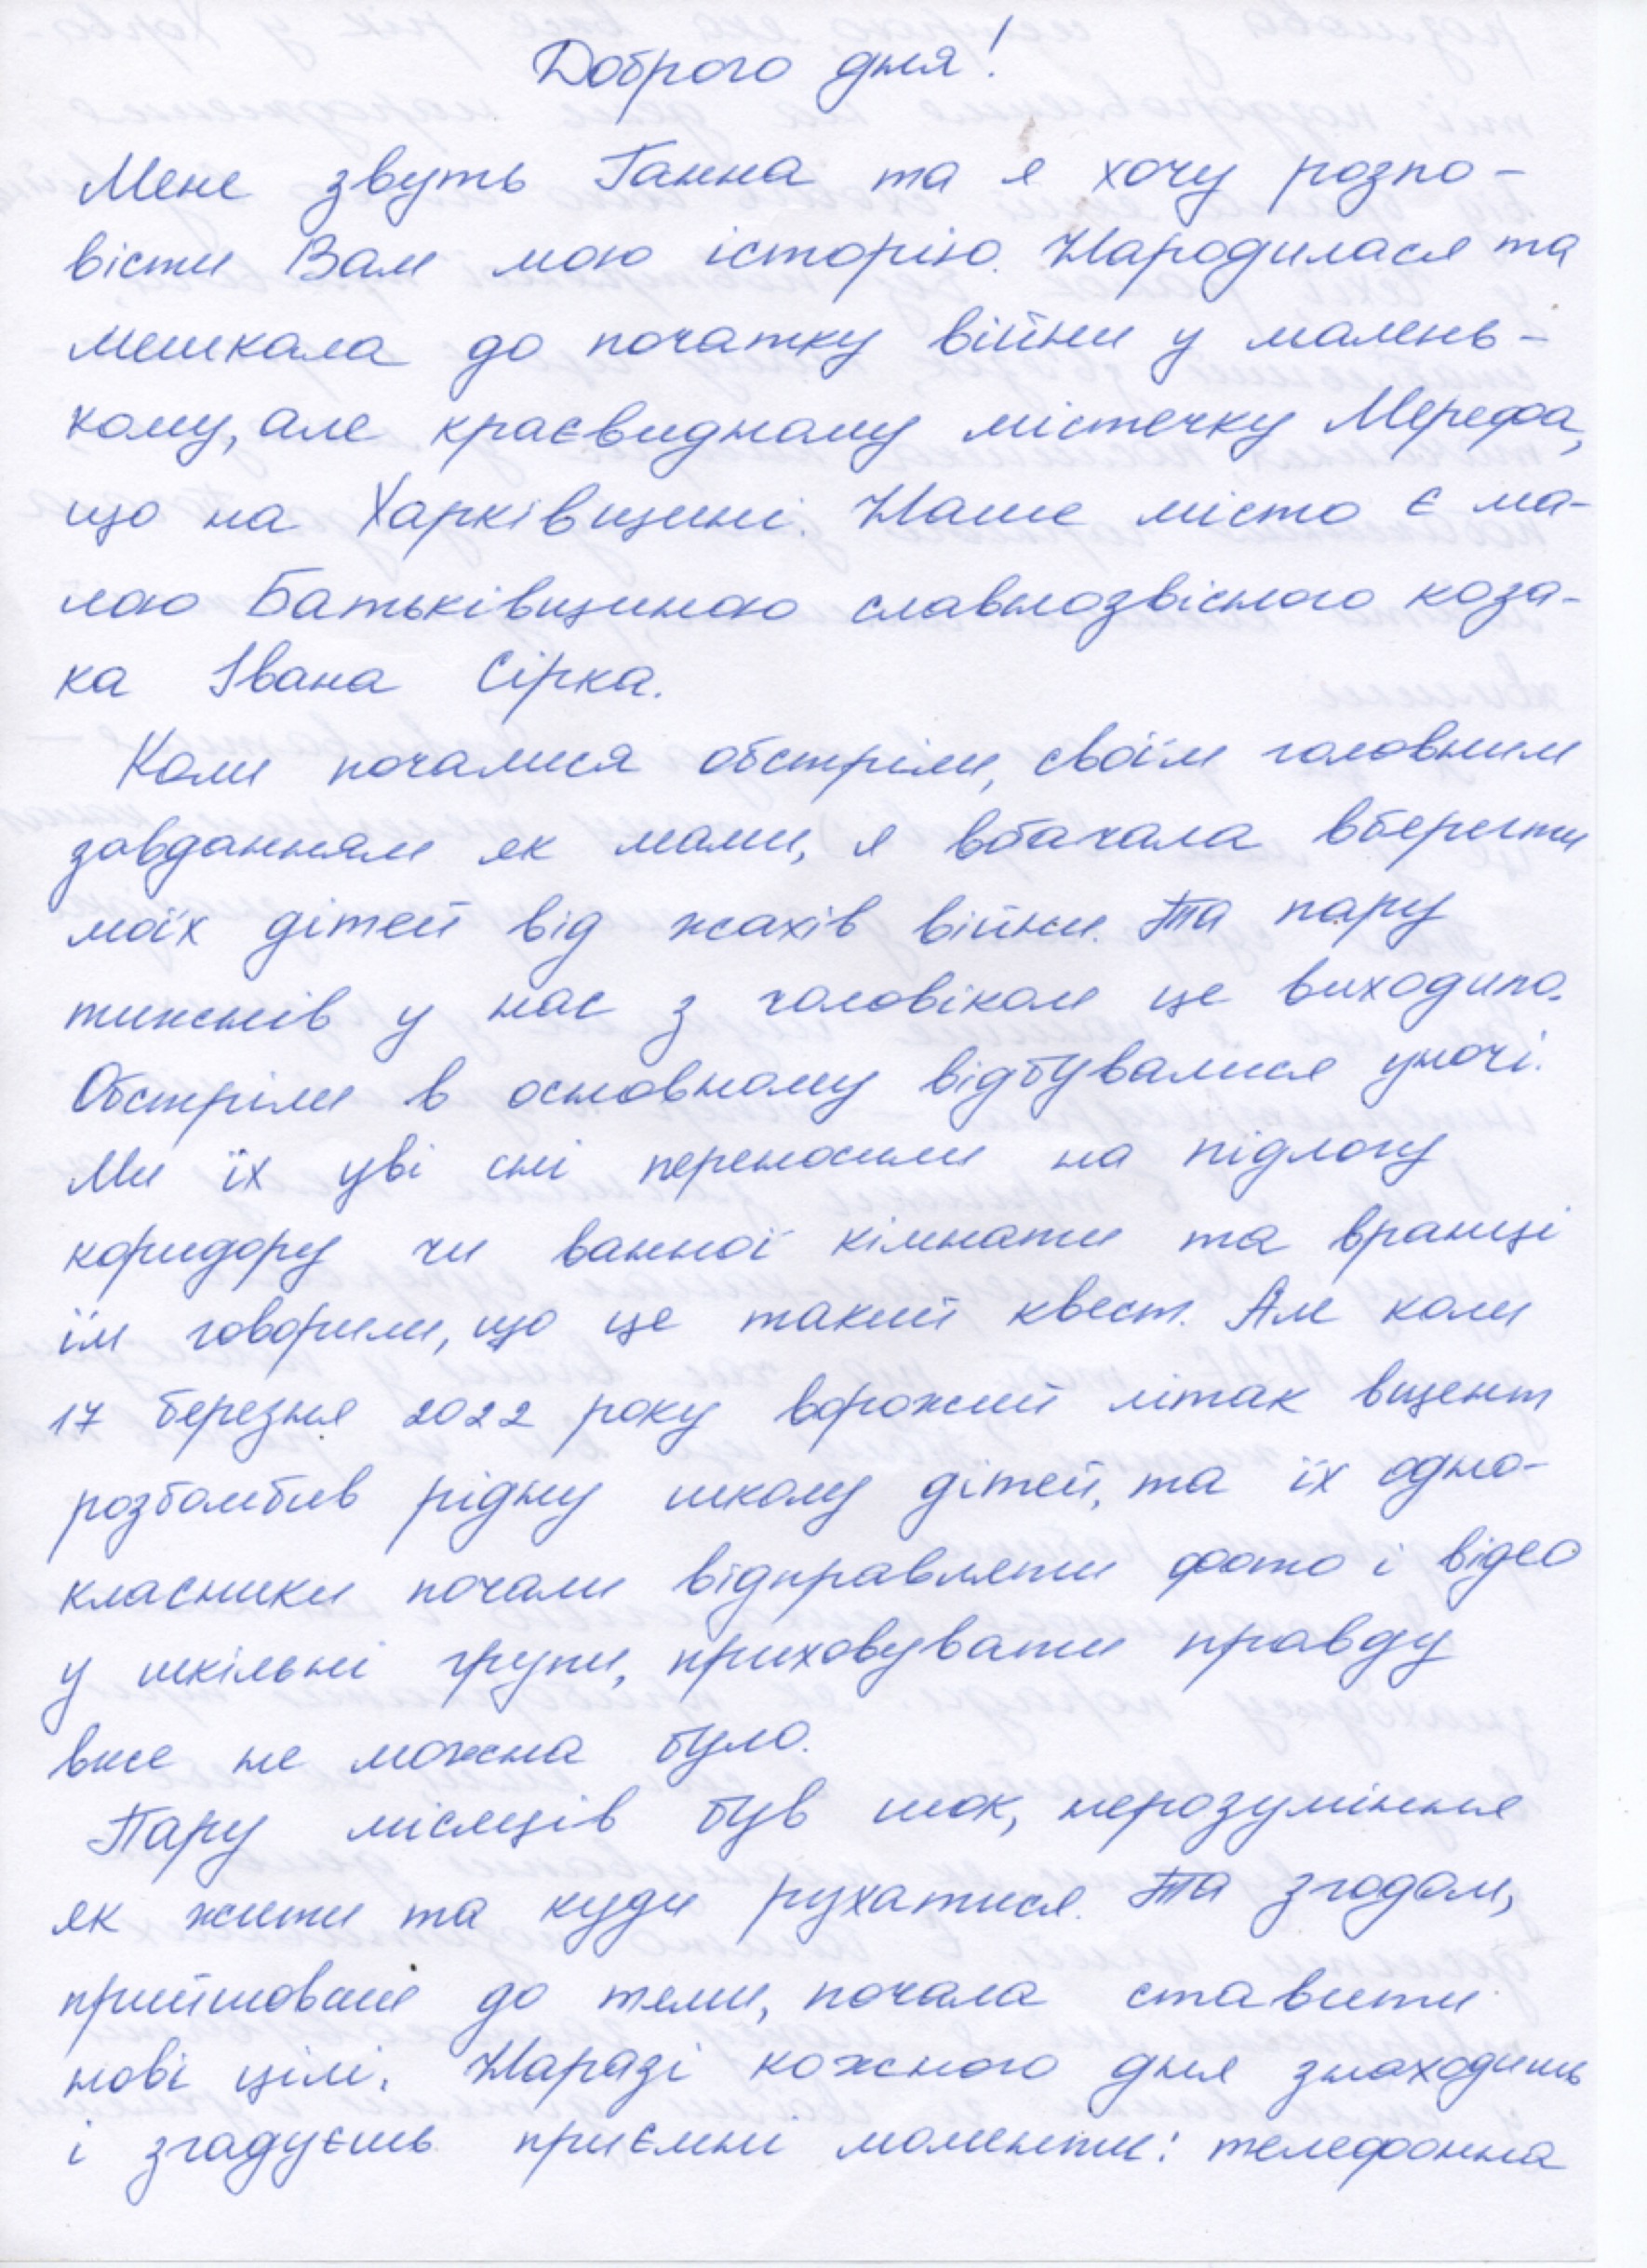 Доброго дня!
Мене звуть Ганна та я хочу розпо-
вісти Вам мою історію. Народилася та
мешкала до початку війни у малень-
кому, але краєвидному містечку Мерефа,
що на Харківщині. Наше місто є ма-
лою Батьківщиною славнозвісного коза-
ка Івана Сірка.
Коли почалися обстріли, своїм головним
завданням як мами, я вбачала вберегти
моїх дітей від жахів війни. Та пару
тижнів у нас з чоловіком це виходило.
Обстріли в основному відбувалися уночі.
Ми їх уві сні переносили на підлогу
коридору чи ванної кімнати та вранці
їм говорили, що це такий квест. Але коли
17 березня 2022 року ворожий літак вщент
розбомбив рідну школу дітей, та їх одно-
класники почали відправляти фото і відео
у шкільні групи, приховувати правду
вже не можна було.
Пару місяців був шок, нерозуміння
як жити та куди рухатися. Та згодом,
прийшовши до теми, почала ставити
нові цілі. Наразі кожного дня знаходиш
і згадуєшь приємні моменти: телефонна